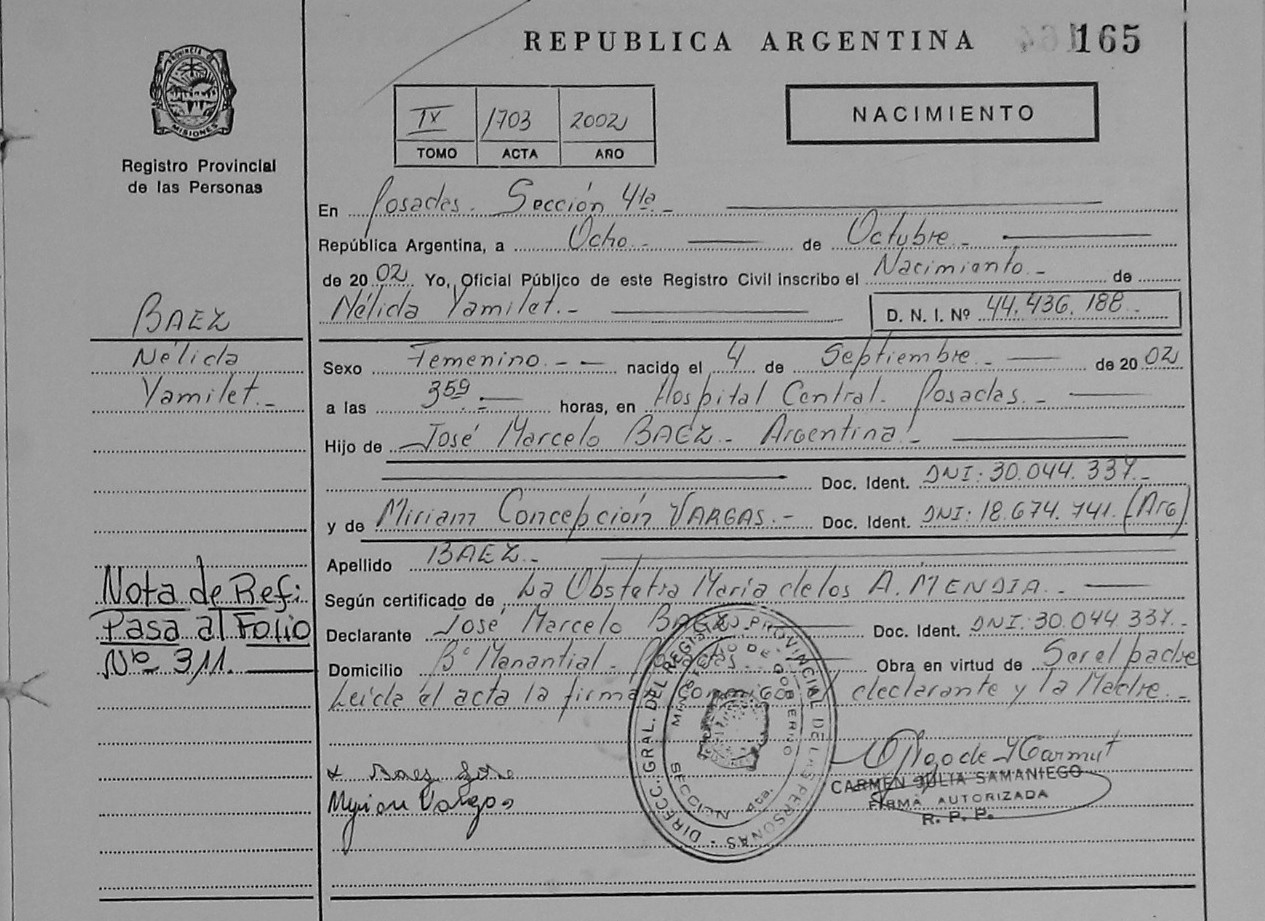 REPUBLICA ARGENTINA 165
PROVINCIA DE MISIONES
Registro Provincial
de las Personas
IX 1703 2002
TOMO ACTA AÑO
NACIMIENTO
En Posadas. Sección 4ta.-
República Argentina, a Ocho.- de Octubre.-
de 2002 Yo, Oficial Público de este Registro Civil inscribo el Nacimiento.- de
Nélida Yamilet.- D. N. I. Nº 44.436.188.-
BAEZ
Nélida
Yamilet.-
Sexo Femenino.- nacido el 4 de Septiembre.- de 2002
a las 359.- horas, en Hospital Central. Posadas.-
Hijo de José Marcelo BAEZ.- Argentina.-
Doc. Ident. DNI: 30.044.337.-
y de Miriam Concepción VARGAS.- Doc. Ident. DNI: 18.674.741. (Arg)
Apellido BAEZ.-
Según certificado de La Obstetra María de los A. MENDIA.-
Declarante José Marcelo BAEZ.- Doc. Ident. DNI: 30.044.337.-
Domicilio Bº Manantial.- Posadas.- Obra en virtud de Ser el padre
Leída el acta la firma conmigo el declarante y la Madre.-
Nota de Ref:
Pasa al Folio
Nº 311.
x Baez Jose
Myrian Vargas
DIRECC. GRAL. DEL REGISTRO PROVINCIAL DE LAS PERSONAS
MINISTERIO DE GOBIERNO
SECCION 4ta.
CARMEN JULIA SAMANIEGO
FIRMA AUTORIZADA
R. P. P.